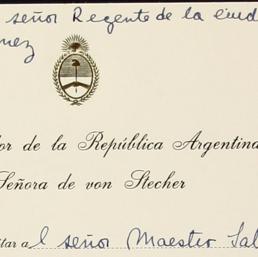 señor Regente de la ciud
nez
or de la República Argentina
Señora de von Stecher
itar a l señor Maestro Sal